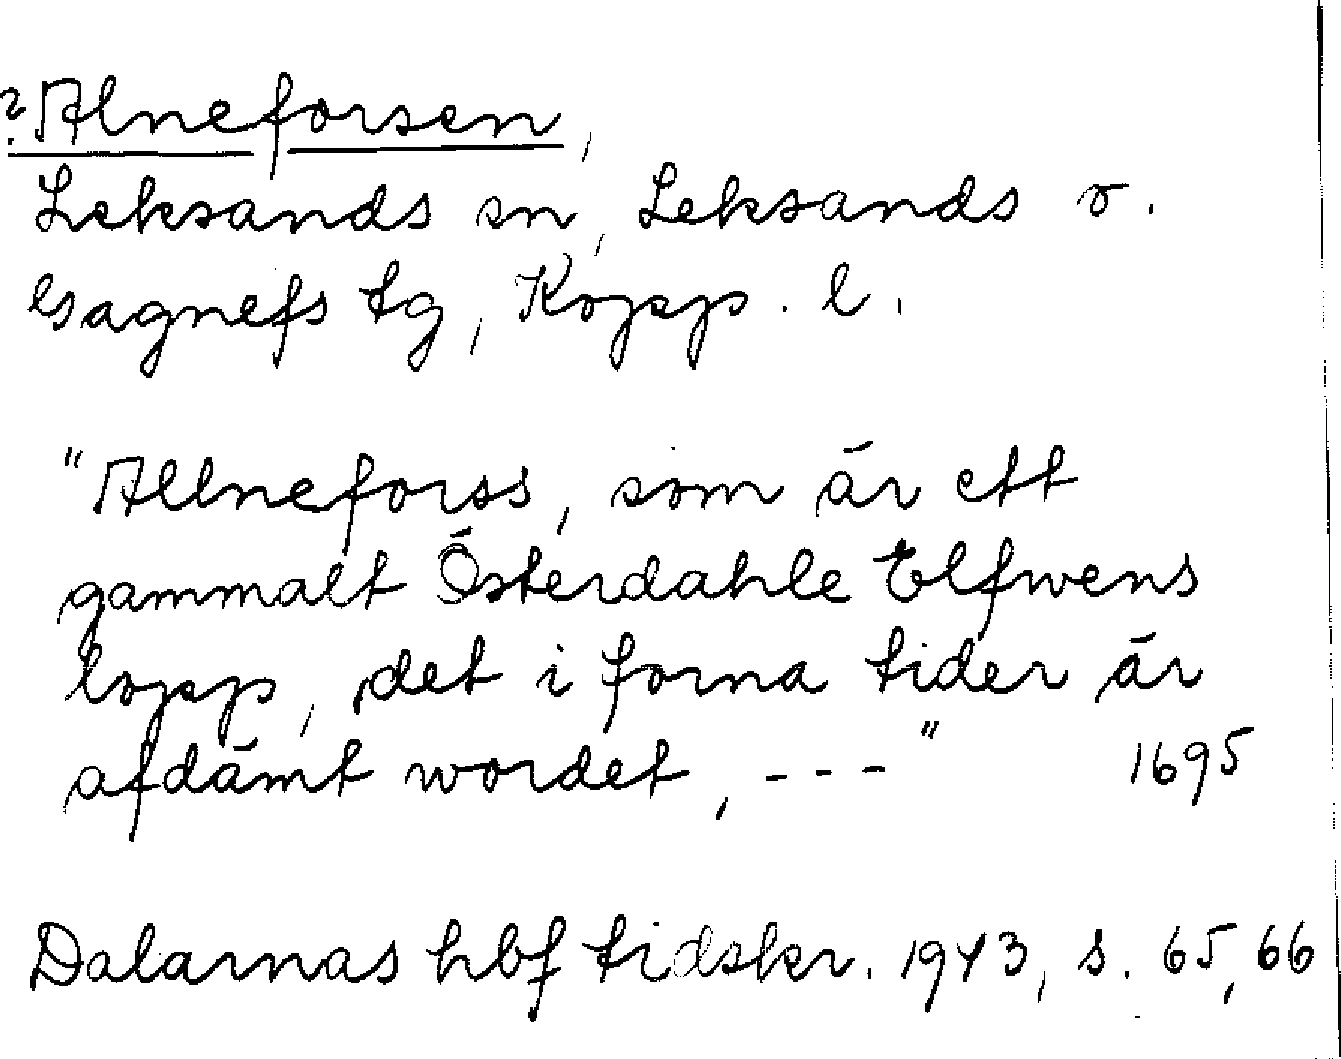 ? Alneforsen,
Leksands sn, Leksands o.
Gagnefs tg, Kopp. l.
"Allneforss, som är ett
gammalt Österdahle Elfwens
lopp, det i forna tider är
afdämt wordet, ---" 1695
Dalarnas hbf tidskr. 1943, s. 65, 66